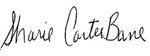 Sharie Carter Bane